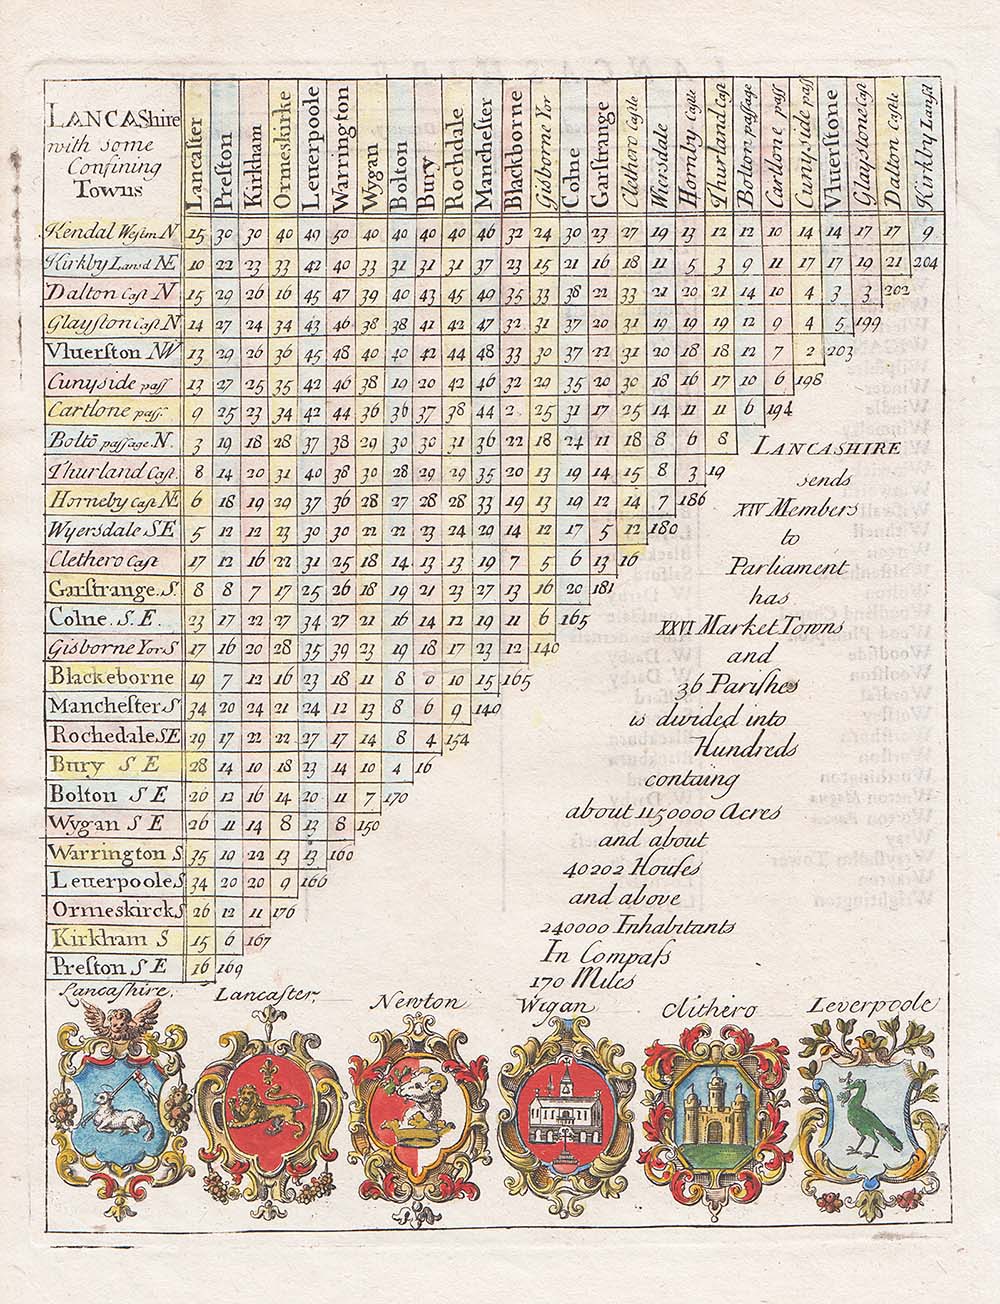 LANCAShire
with some
Confining
Towns
Lancaſter
Preſton
Kirkham
Ormeskirke
Leuerpoole
Warrington
Wygan
Bolton
Bury
Rochdale
Mancheſter
Blackborne
Giſborne Yor
Colne
Garſtrange
Clethero Caſtle
Wiersdale
Hornby Caſtle
Thurland Caſt
Bolton paſſage
Cartlone paſſ
Cunyside paſſ
Vluerſtone
Glayſtone Caſt
Dalton Caſtle
Kirkby Lanſd
Kendal Weſtm N 15 30 30 40 49 50 40 40 40 40 46 32 24 30 23 27 19 13 12 12 10 14 14 17 17 9
Kirkby Lansd NE 10 22 23 33 42 40 33 31 31 31 37 23 15 21 16 18 11 5 3 9 11 17 17 19 21 204
Dalton Caſt N 15 29 26 16 45 47 39 40 43 45 49 35 33 38 22 33 21 20 21 14 10 4 3 3 202
Glayſton Caſt N 14 27 24 34 43 46 38 38 41 42 47 32 31 37 20 31 19 19 19 12 9 4 5 199
Vluerſton NW 13 29 26 36 45 48 40 40 42 44 48 33 30 37 22 31 20 18 18 12 7 2 203
Cunyside paſſ 13 27 25 35 42 46 38 19 20 42 46 32 29 35 20 30 18 16 17 10 6 198
Cartlone paſſ. 9 25 23 34 42 44 36 36 37 38 44 2 25 31 17 25 14 11 11 6 194
Boltō paſſage N. 3 19 18 28 37 38 29 30 30 31 36 22 18 24 11 18 8 6 8
Thurland Caſt. 8 14 20 31 40 38 30 28 29 29 35 20 13 19 14 15 8 3 19
Horneby Caſt NE 6 18 19 29 37 36 28 27 28 28 33 19 13 19 12 14 7 186
Wyersdale SE 5 12 12 23 30 30 22 22 23 24 29 14 12 17 5 12 180
Clethero Caſt 17 12 16 22 31 25 18 14 13 13 19 7 5 6 13 16
Garſtrange. S. 8 8 7 17 25 26 18 19 21 23 27 13 16 20 181
Colne. S. E. 23 17 22 27 34 27 21 16 14 12 19 11 6 165
Gisborne Yor S 17 16 20 28 35 39 23 19 18 17 23 12 140
Blackeborne 19 7 12 16 23 18 11 8 0 10 15 165
Mancheſter S 34 20 24 21 24 12 13 8 6 9 140
Rochedale SE 29 17 22 22 27 17 14 8 4 154
Bury S E 28 14 10 18 23 14 10 4 16
Bolton S E 20 12 16 14 20 11 7 170
Wygan S E 26 11 14 8 13 8 150
Warrington S 35 19 22 13 13 160
Leuerpoole S 34 20 20 9 166
Ormeskirck S 26 12 11 176
Kirkham S 15 6 167
Preſton S E 16 169
LANCASHIRE
sends
XIV Members
to
Parliament
has
XXVI Market Towns
and
36 Pariſhes
is divided into
Hundreds
containg
about 1150000 Acres
and about
40202 Houſes
and above
240000 Inhabitants
In Compaſs
170 Miles
Lancaſhire.
Lancaſter.
Newton
Wigan
Clithero
Leverpoole